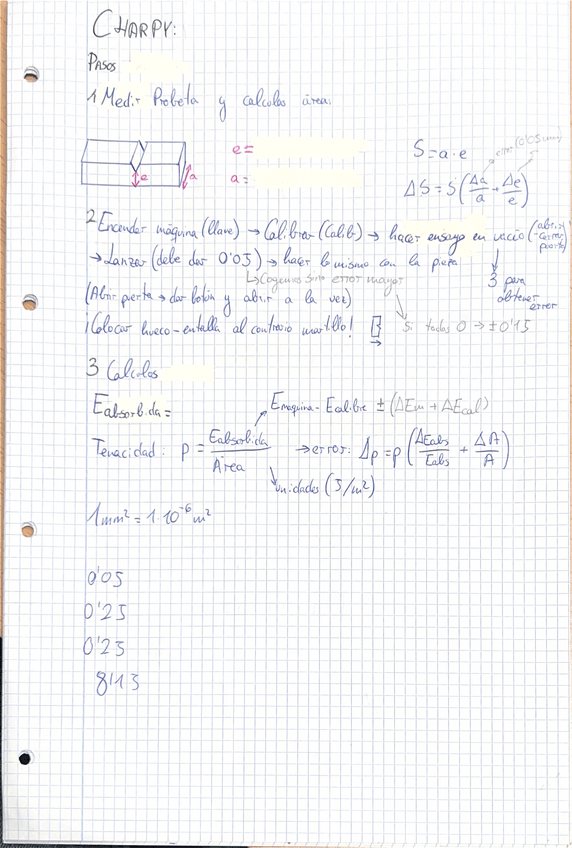 CHARPY:
PASOS
1 Medir Probeta y calculos área:
e=
a=
e
a
S=a·e
error (0'05mm)
ΔS=S(Δa/a + Δe/e)
2 Encender máquina (llave) → Calibrar (Calib) → hacer ensayo en vacío (abrir-cerrar puerta)
→ Lanzar (debe dar 0'05) → hacer lo mismo con la pieza
↳ Cogemos error mayor
3 para obtener error
(Abrir puerta → dar botón y abrir a la vez)
¡Colocar hueco-entalla al contrario martillo!
Si todas 0 → ±0'15
3 Calculos
Eabsorbida=
Emaquina - Ecalibre ± (ΔEm + ΔEcal)
Tenacidad: ρ = Eabsorbida/Área → error: Δρ=ρ(ΔEabs/Eabs + ΔA/A)
unidades (J/m²)
1mm² = 1·10⁻⁶ m²
0'05
0'25
0'25
8'13